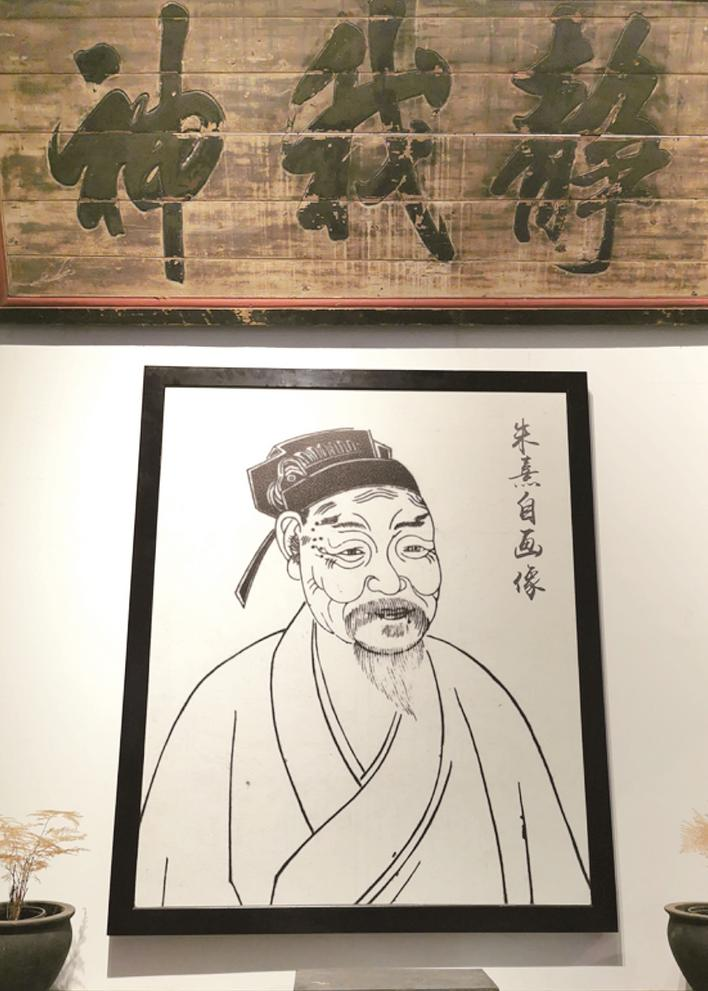 静我神
朱熹自画像